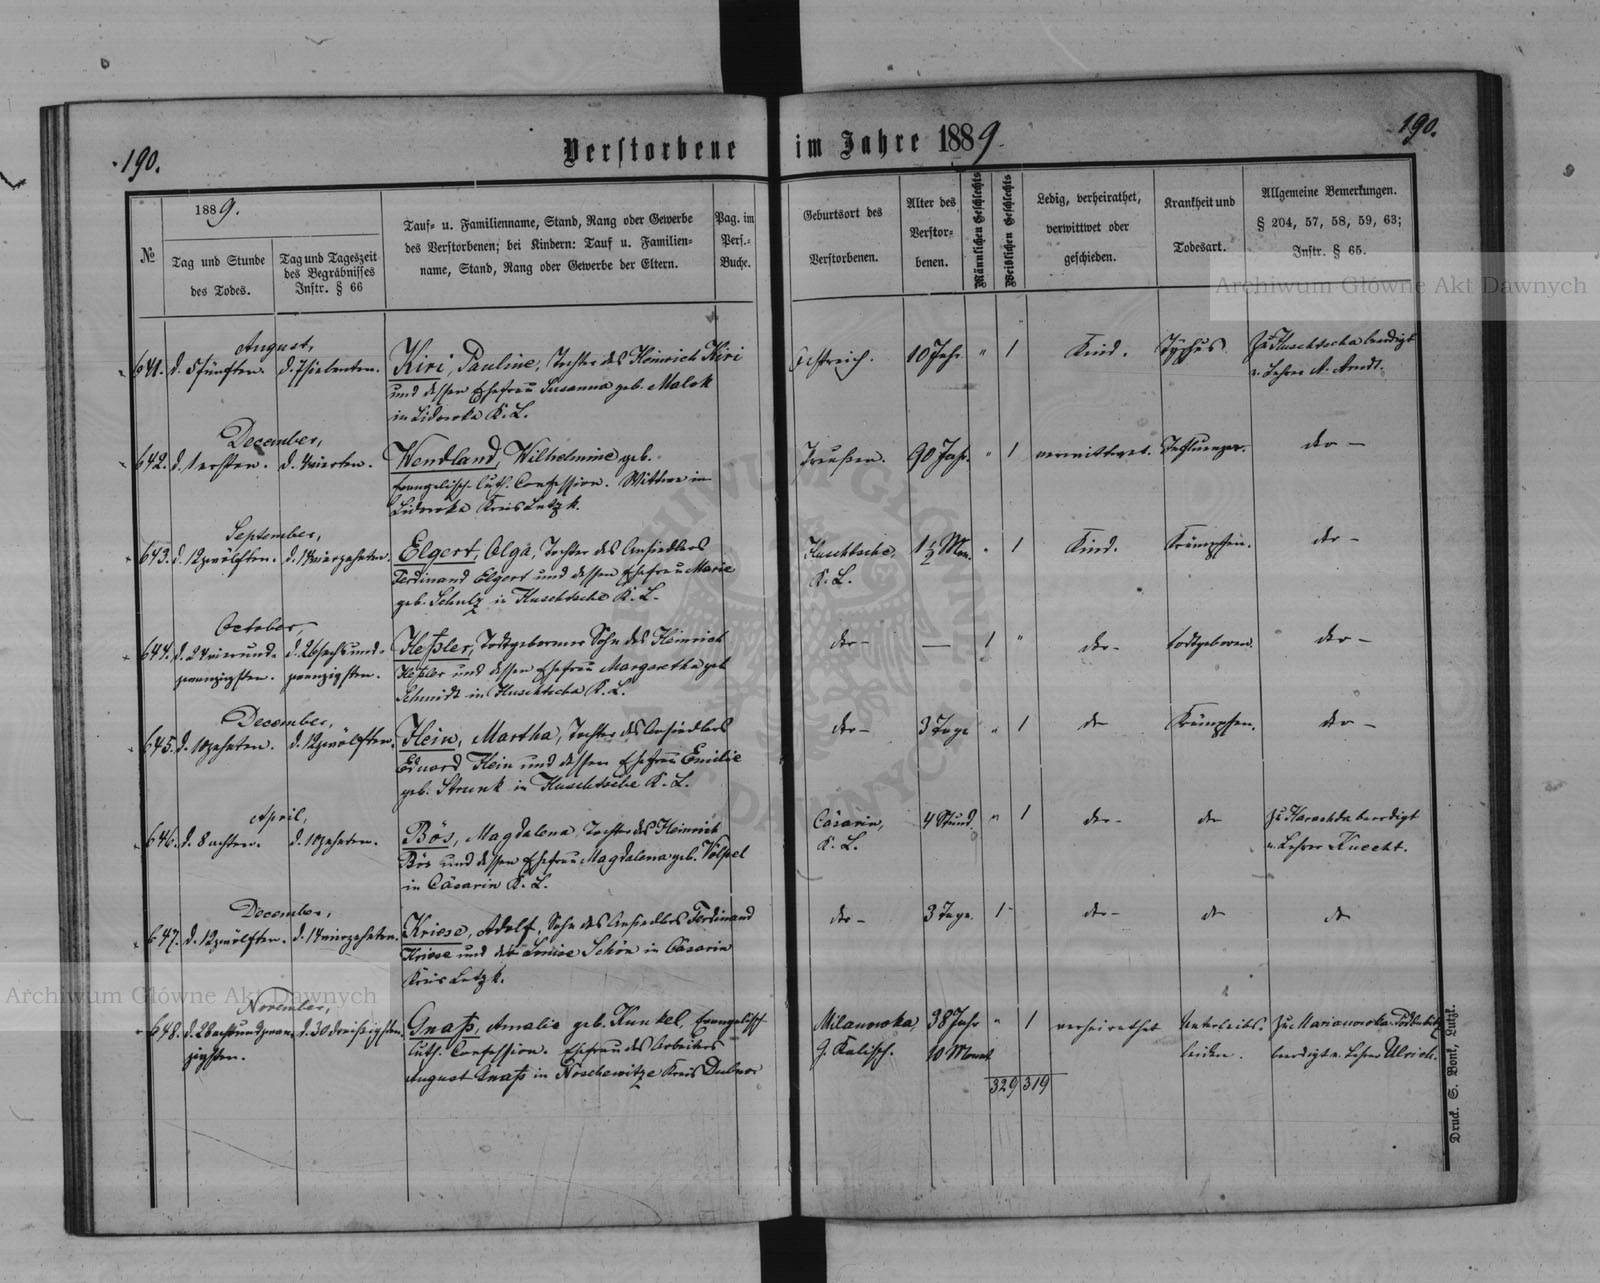 190.
Verstorbene im Jahre 1889.
190.
№
1889.
Tag und Stunde
des Todes.
Tag und Tageszeit
des Begräbnisses
Instr. § 66
Tauf- u. Familienname, Stand, Rang oder Gewerbe
des Verstorbenen; bei Kindern: Tauf u. Familien-
name, Stand, Rang oder Gewerbe der Eltern.
Pag. im
Pers.-
Buche.
Geburtsort des
Verstorbenen.
Alter des
Verstor-
benen.
Männlichen Geschlechts
Weiblichen Geschlechts
Ledig, verheirathet,
verwittwet oder
geschieden.
Krankheit und
Todesart.
Allgemeine Bemerkungen.
§ 204, 57, 58, 59, 63;
Instr. § 65.
August,
641. d. 5 fünften. d. 7 siebenten.
Kiri, Pauline, Tochter des Heinrich Kiri
und dessen Ehefrau Susanna geb. Malok
in K. L.
Östreich. 10 Jahr. " 1 Kind. Typhus. zu Kuschtscha beerdigt
v. Lehrer A. Arndt.
December,
642. d. 1 ersten. d. 4 vierten.
Wendland, Wilhelmine geb.
Evangelisch-luth. Confession. Wittwe in
Kreis Lutzk.
Preußen. 90 Jahr. " 1 verwittwet. Influenza. do –
September,
643. d. 12 zwölften. d. 14 vierzehnten.
Elgert, Olga, Tochter des Ansiedlers
Ferdinand Elgert und dessen Ehefrau Marie
geb. Schulz in Kuschtscha K. L.
Kuschtscha,
K. L.
1½ Mon. " 1 Kind. Krämpfen. do –
October,
644. d. 24 vierund- d. 26 sechsund-
zwanzigsten. zwanzigsten.
Keßler, Todtgeborener Sohn des Heinrich
Keßler und dessen Ehefrau Margaretha geb.
Schmidt in Kuschtscha K. L.
do – — 1 " do – todtgeboren. do –
December,
645. d. 10 zehnten. d. 12 zwölften.
Hein, Martha, Tochter des Ansiedlers
Eduard Hein und dessen Ehefrau Emilie
geb. Strunk in Kuschtscha K. L.
do – 3 Tage " 1 do Krämpfen. do –
April,
646. d. 8 achten. d. 10 zehnten.
Bös, Magdalena, Tochter des Heinrich
Bös und dessen Ehefrau Magdalena geb. Völpel
in Cäsarin K. L.
Cäsarin,
K. L.
4 Stund. " 1 do – do zu beerdigt
v. Lehrer Knecht.
December,
647. d. 12 zwölften. d. 14 vierzehnten.
Kriese, Adolf, Sohn des Ansiedlers Ferdinand
Kriese und der Louise Schön in Cäsarin
Kreis Lutzk.
do – 3 Tage. 1 do – do do
November,
648. d. 28 achtundzwan- d. 30 dreißigsten.
zigsten.
Gnaß, Amalie geb. Kunkel, Evangelisch-
luth. Confession. Ehefrau des Arbeiters
August Gnaß in Noschewitze Kreis Dubno
Milanowka,
G. Kalisch.
38 Jahr
10 Monat
" 1 verheirathet Unterleibs-
leiden.
zu Marianowka
beerdigt v. Lehrer Ulrich.
329 319
Druck. S. Bonk, Lutzk.
Archiwum Główne Akt Dawnych
Archiwum Główne Akt Dawnych
ARCHIWUM GŁÓWNE AKT DAWNYCH